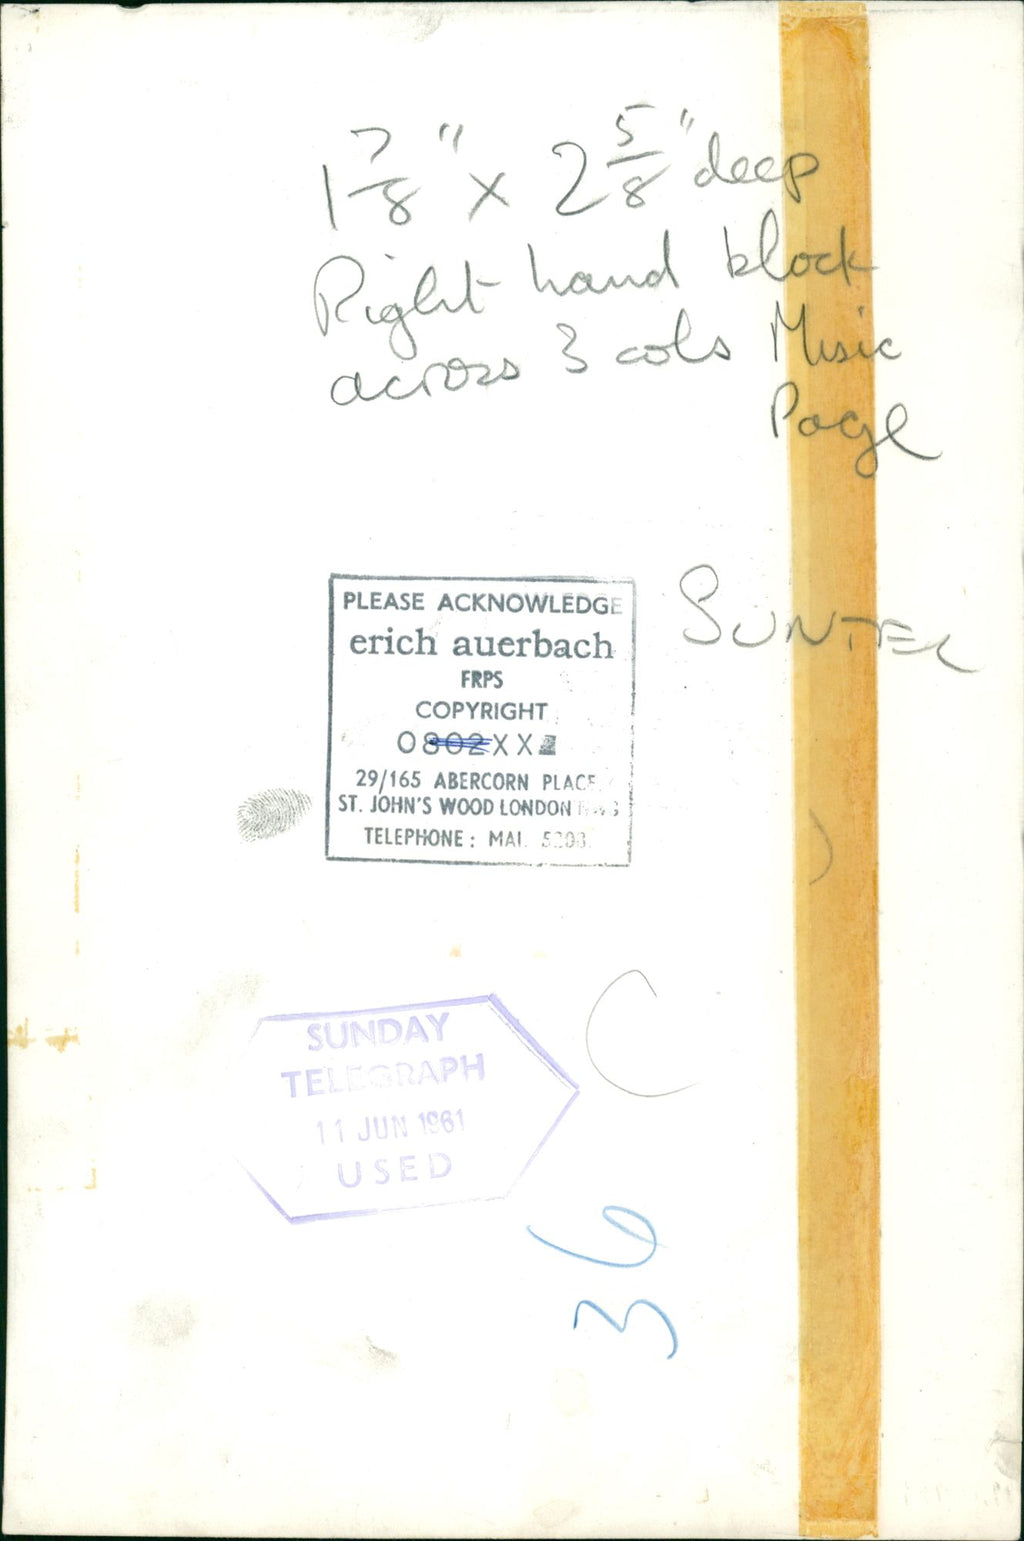 1 7/8" x 2 5/8" deep
Right hand block
across 3 cols Music
Page
SUNTEL
PLEASE ACKNOWLEDGE
erich auerbach
FRPS
COPYRIGHT
0802XX
29/165 ABERCORN PLACE
ST. JOHN'S WOOD LONDON
TELEPHONE: MAI.
SUNDAY
TELEGRAPH
11 JUN 1961
USED
36